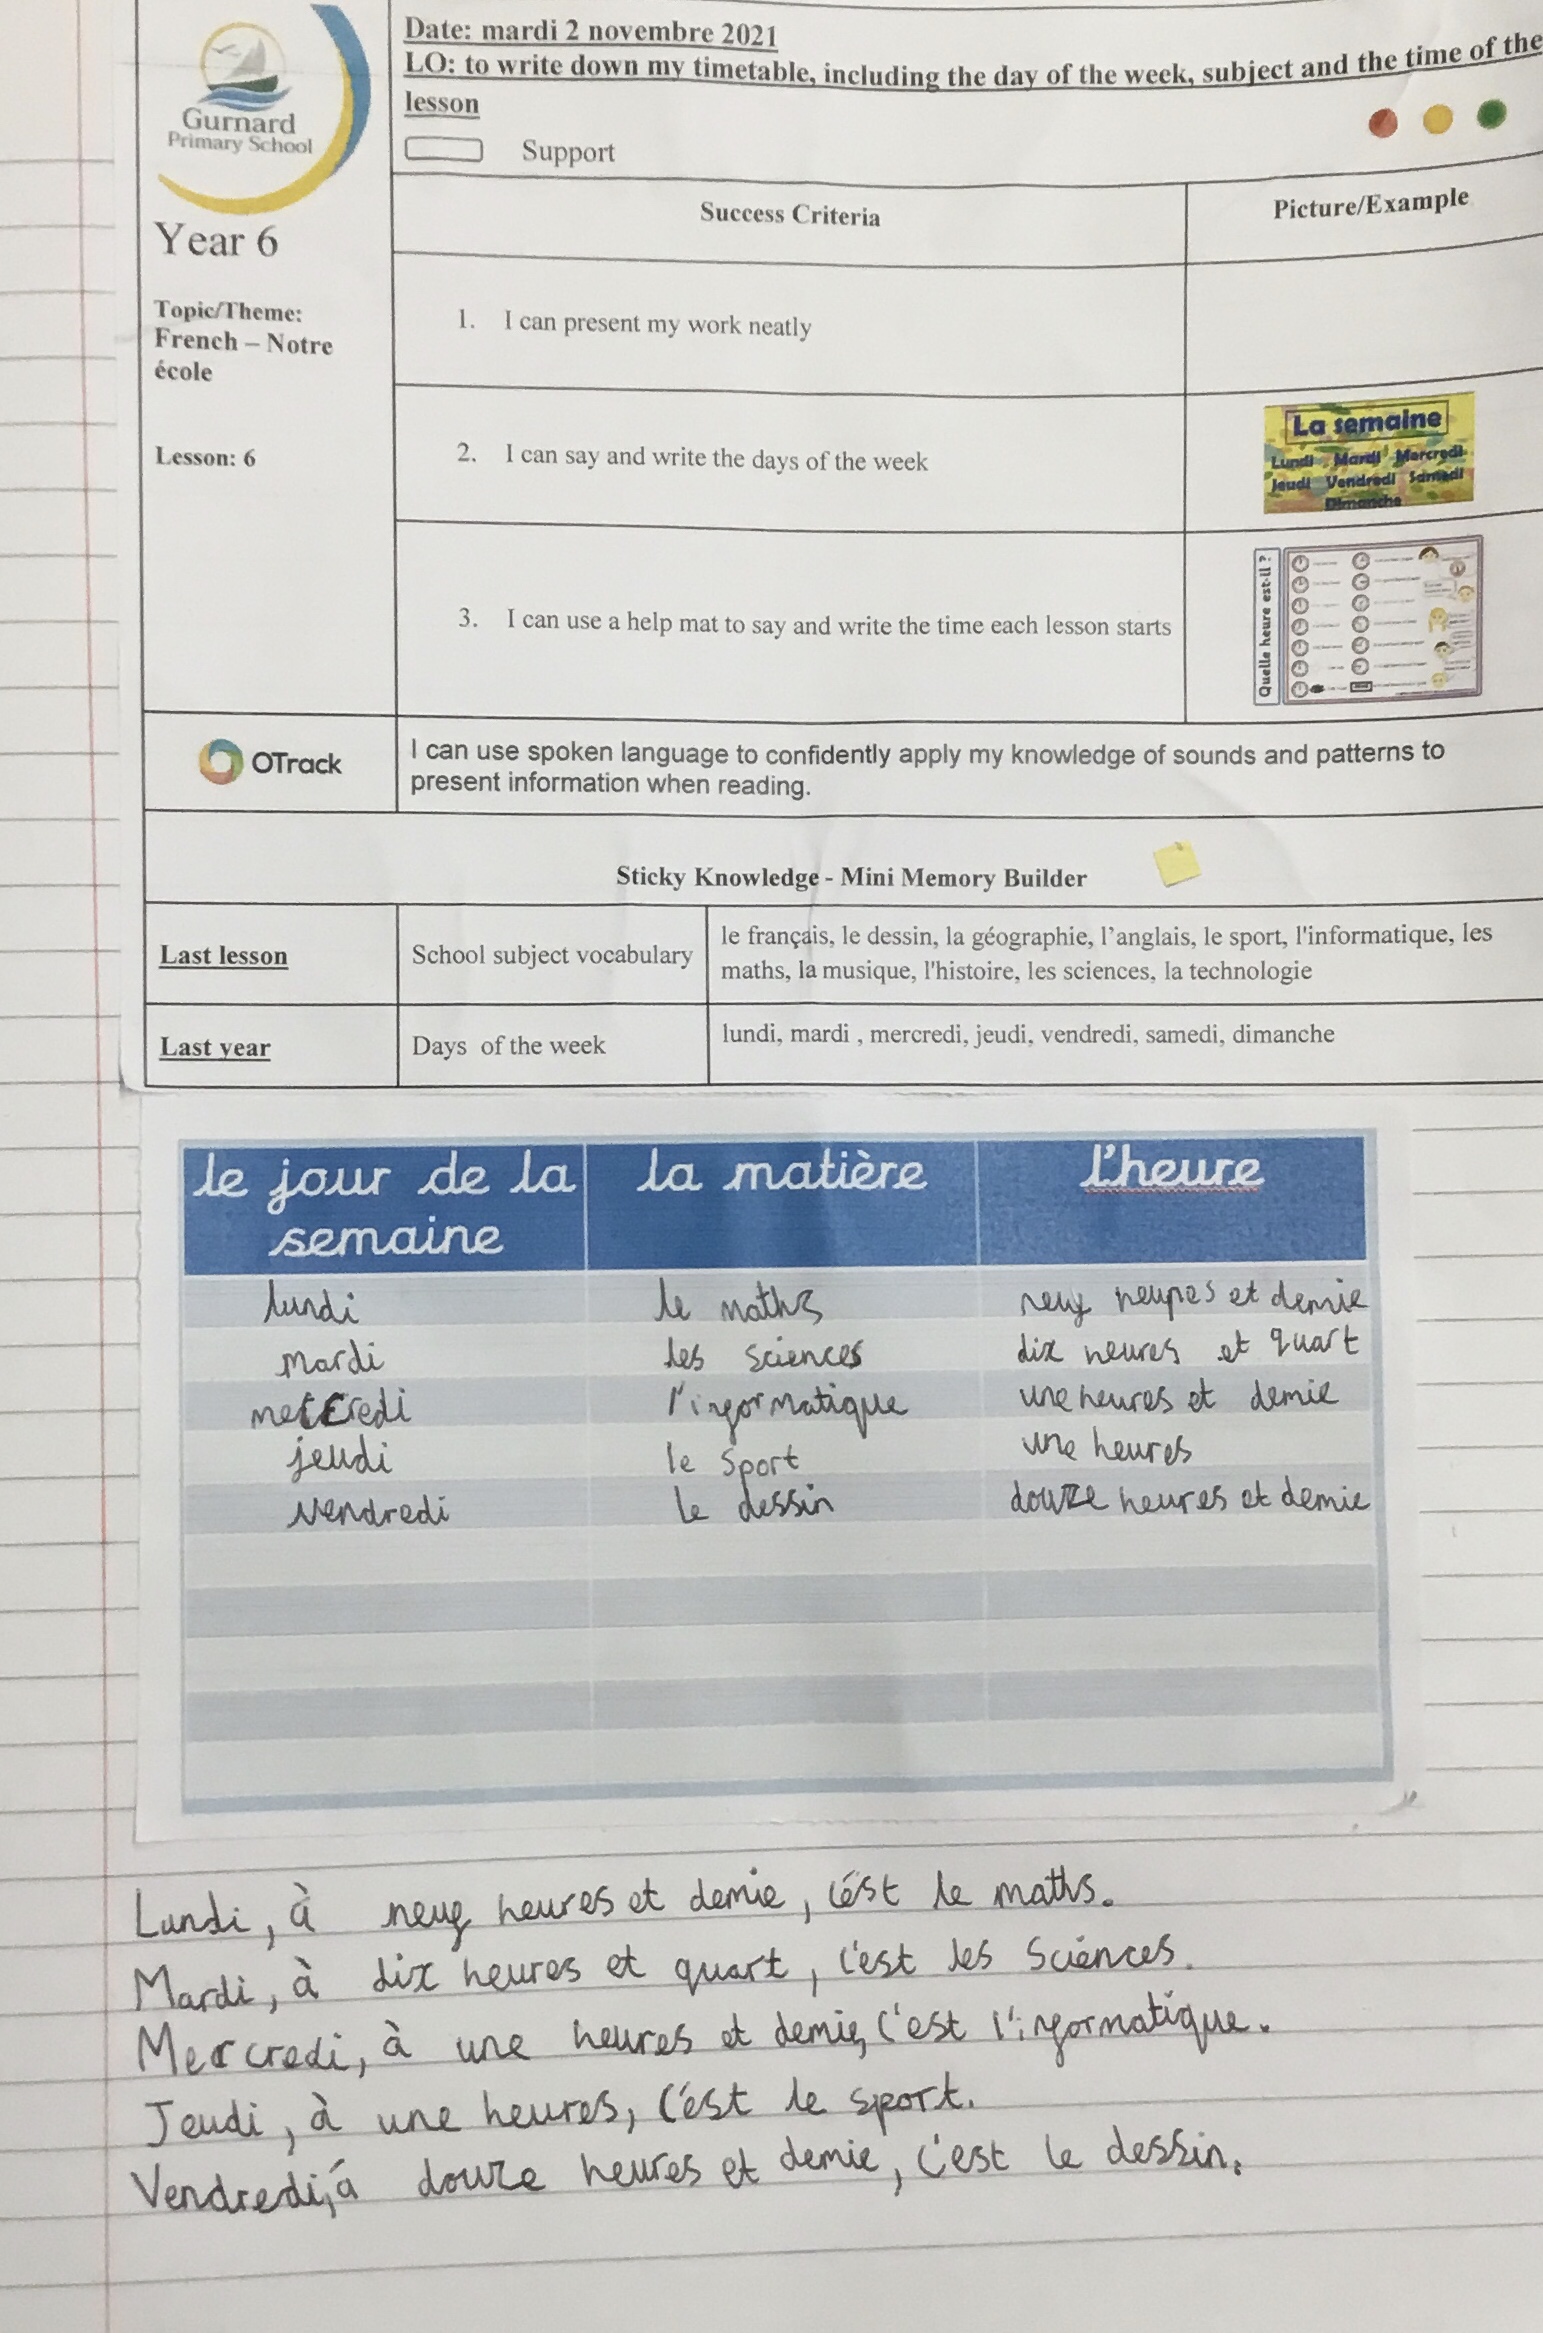 Gurnard
Primary School
Year 6
Topic/Theme:
French – Notre
école
Lesson: 6
Date: mardi 2 novembre 2021
LO: to write down my timetable, including the day of the week, subject and the time of the
lesson
Support
Success Criteria Picture/Example
1. I can present my work neatly
2. I can say and write the days of the week
La semaine
Lundi Mardi Mercredi
Jeudi Vendredi Samedi
Dimanche
3. I can use a help mat to say and write the time each lesson starts
Quelle heure est-il ?
OTrack
I can use spoken language to confidently apply my knowledge of sounds and patterns to
present information when reading.
Sticky Knowledge - Mini Memory Builder
Last lesson School subject vocabulary
le français, le dessin, la géographie, l’anglais, le sport, l'informatique, les
maths, la musique, l'histoire, les sciences, la technologie
Last year Days of the week lundi, mardi , mercredi, jeudi, vendredi, samedi, dimanche
le jour de la
semaine
la matière
l'heure
lundi le maths neuf heures et demie
mardi les sciences dix heures et quart
mercredi l'informatique une heures et demie
jeudi le sport une heures
vendredi le dessin douze heures et demie
Lundi, à neuf heures et demie, c'ést le maths.
Mardi, à dix heures et quart, c'est les sciences.
Mercredi, à une heures et demie, c'est l'informatique.
Jeudi, à une heures, c'est le sport.
Vendredi, á douze heures et demie, c'est le dessin.